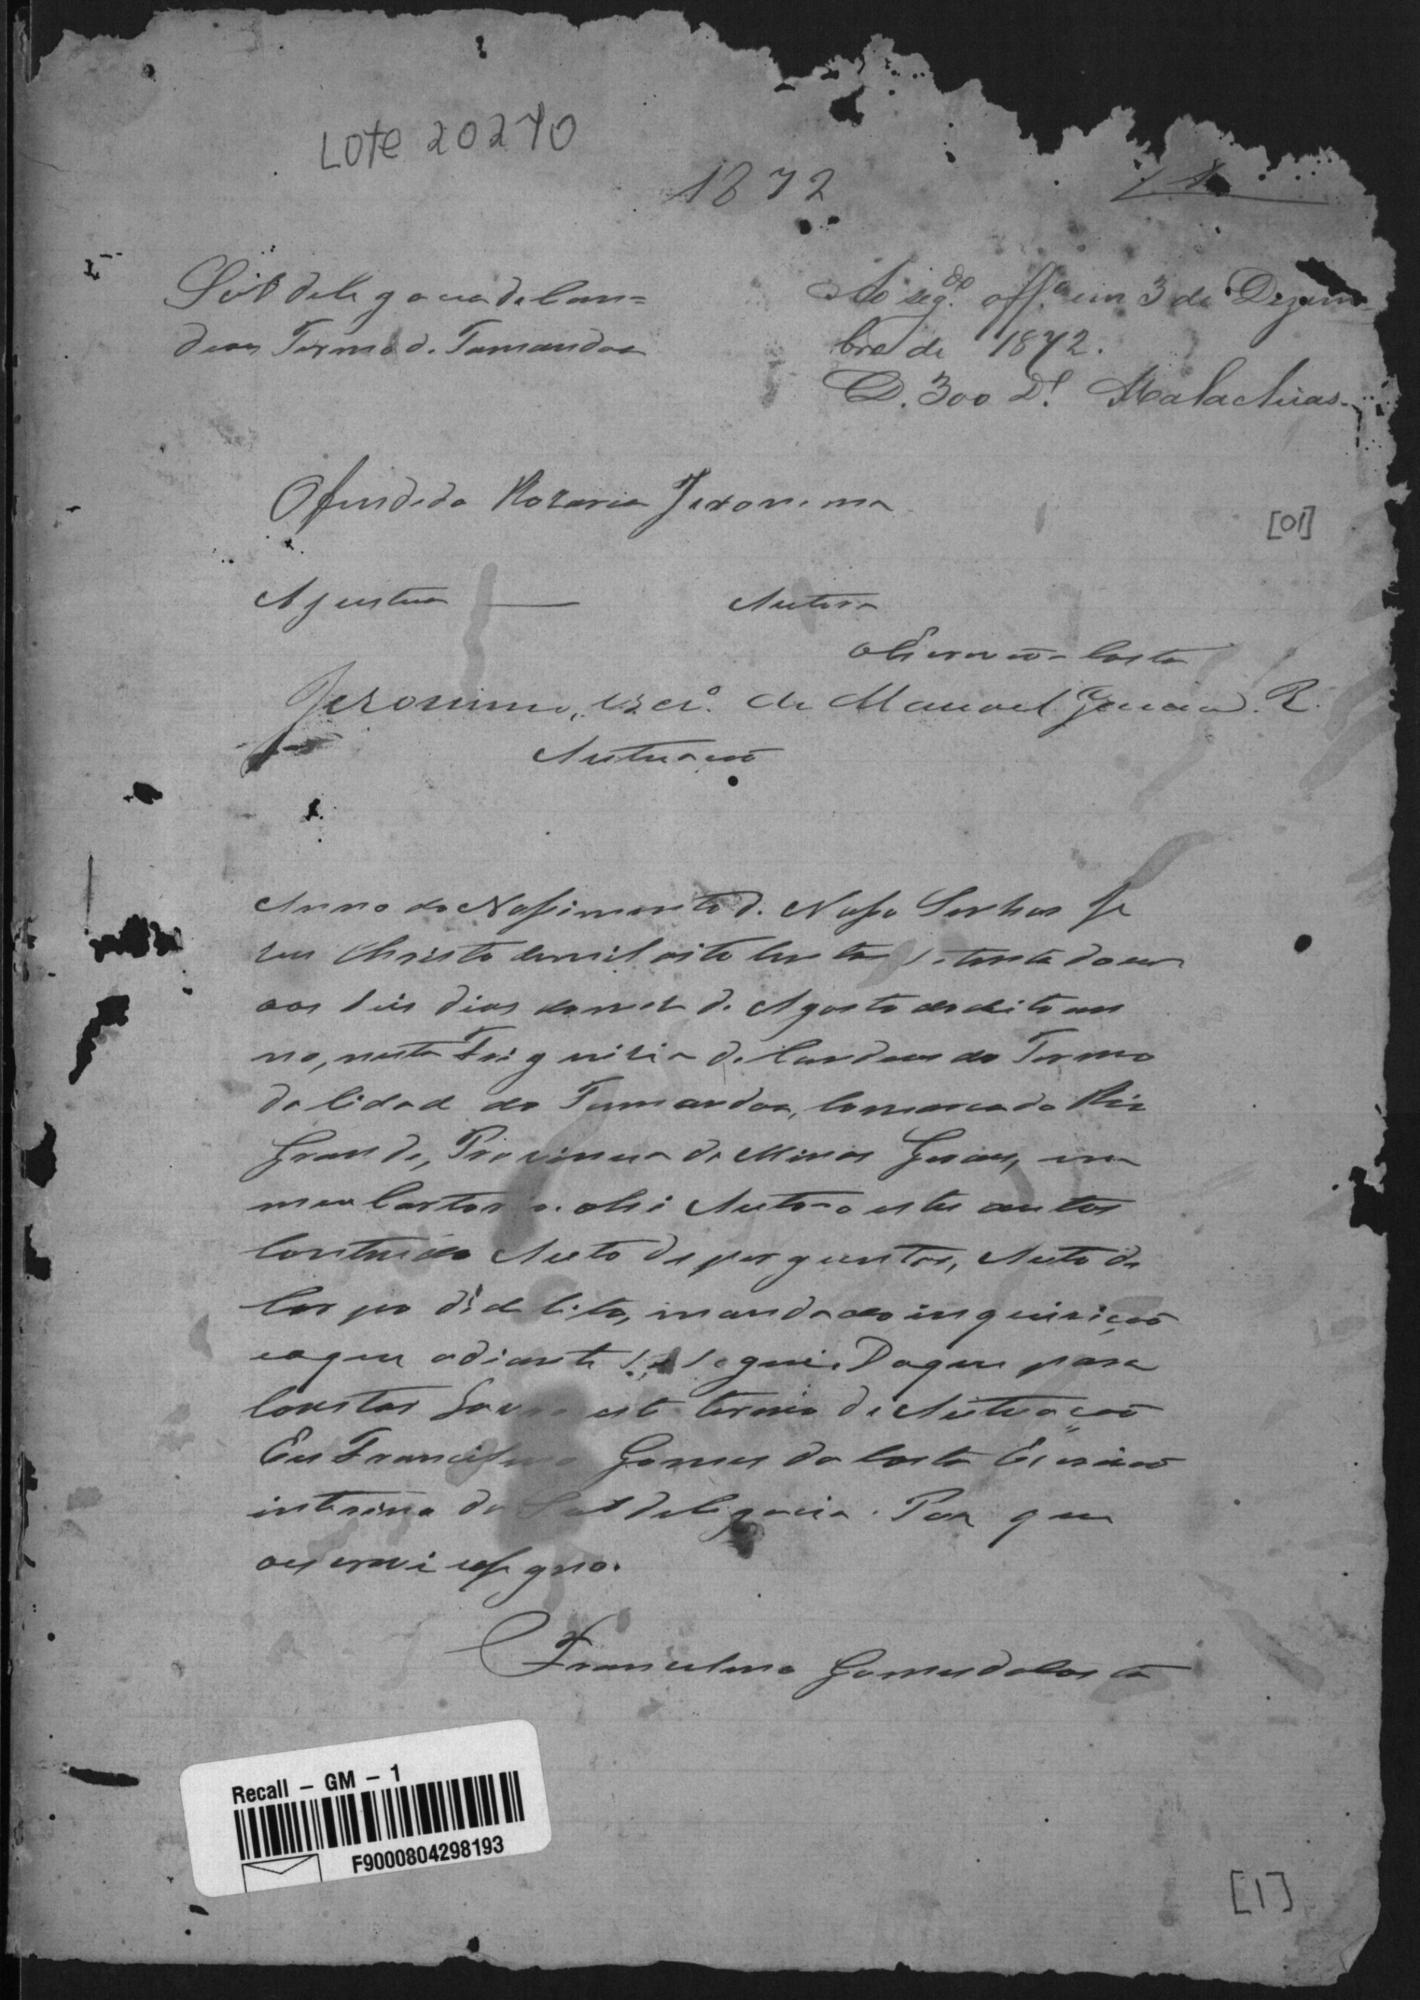 Lote 20270
1872
1
Subdelegacia de Can=
deas Termo de Tamandoa
Ao seg.do off.o em 3 de Dezem
bro de 1872.
D. 300 Malachias
Ofendida Rozaria Jeronima
[01]
A Justica — Autora
O Escrivão Costa
Jeronimo, escr.o de Manoel Garcia R.
Autuacão
Anno do Nascimento de Nosso Senhor Je
zus Christo de mil oito centos setenta dous
aos seis dias do mez de Agosto do dito an
no, nesta Freguizia de Candeas do Termo
da Cidade de Tamandoa, Comarca do Rio
Grande, Provincia de Minas Geraes, em
meu Cartorio ahi Autoo estes autos
Contendo Auto de perguntas, Auto de
Corpo de delito, mandado inquirição
e o que adiante se segue. Do que para
Constar Lavro este termo de Autuação
Eu Francelino Gomes da Costa Escrivão
interino da Subdelegacia. Por que
o escrevi e assigno.
Francelino Gomes da Costa
Recall - GM - 1
F9000804298193
[1]